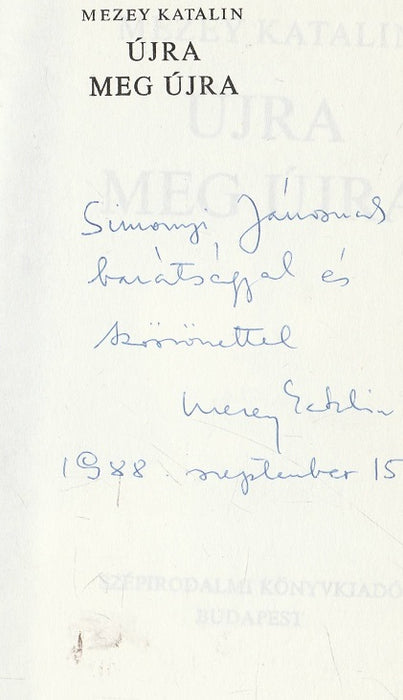 MEZEY KATALIN
ÚJRA
MEG ÚJRA
Simonyi Jánosnak
barátsággal és
köszönettel
Mezey Katalin
1988. szeptember 15
MEZEY KATALIN
ÚJRA
MEG ÚJRA
SZÉPIRODALMI KÖNYVKIADÓ
BUDAPEST